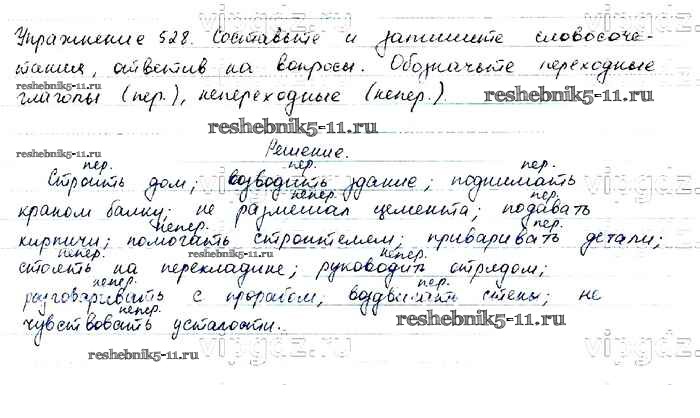 Упражнение 528. Составьте и запишите словосоче-
тания, ответив на вопросы. Обозначьте переходные
глаголы (пер.), непереходные (непер.).
reshebnik5-11.ru
reshebnik5-11.ru
reshebnik5-11.ru
reshebnik5-11.ru
Решение.
пер. пер. пер.
Строить дом; возводить здание; поднимать
непер. пер.
краном балку; не размешал цемента; подавать
непер. пер.
кирпичи; помогать строителем; приваривать детали;
непер. непер.
стоять на перекладине; руководить отрядом;
непер. пер.
разговаривать с прорабом; воздвигать стены; не
непер.
чувствовать усталости.
reshebnik5-11.ru
reshebnik5-11.ru
vipgdz.ru